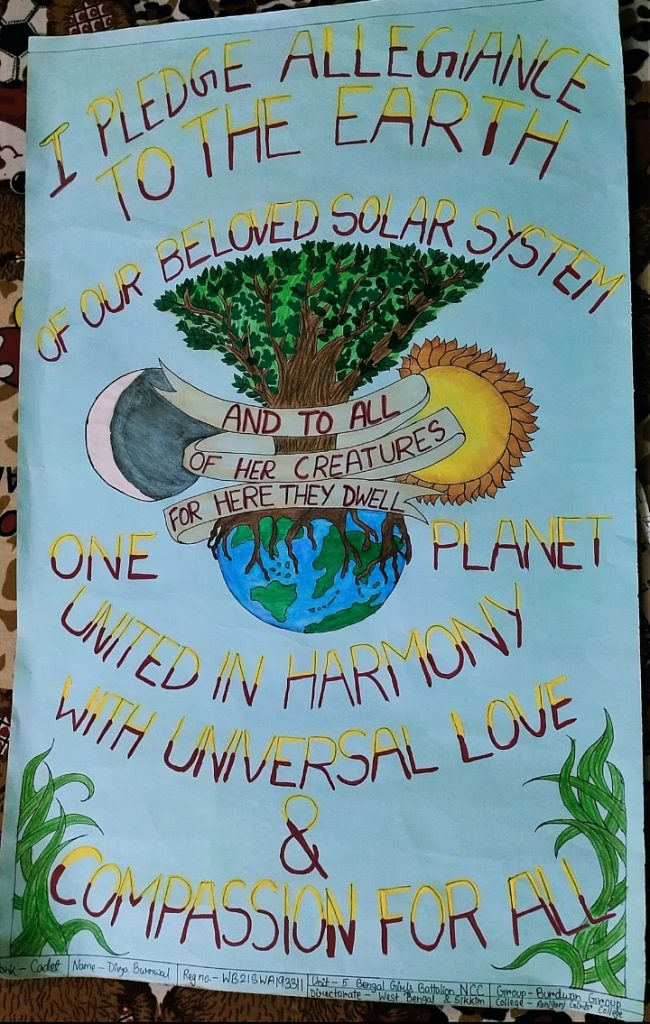 I PLEDGE ALLEGIANCE
TO THE EARTH
OF OUR BELOVED SOLAR SYSTEM
AND TO ALL
OF HER CREATURES
FOR HERE THEY DWELL
ONE PLANET
UNITED IN HARMONY
WITH UNIVERSAL LOVE
&
COMPASSION FOR ALL
Rank - Cadet Name - Divya Burnwal Reg no - WB21SWA193311 Unit - 5 Bengal Girls Battalion NCC Group - Burdwan Group
Directorate - West Bengal & Sikkim College - Raniganj Girls' College